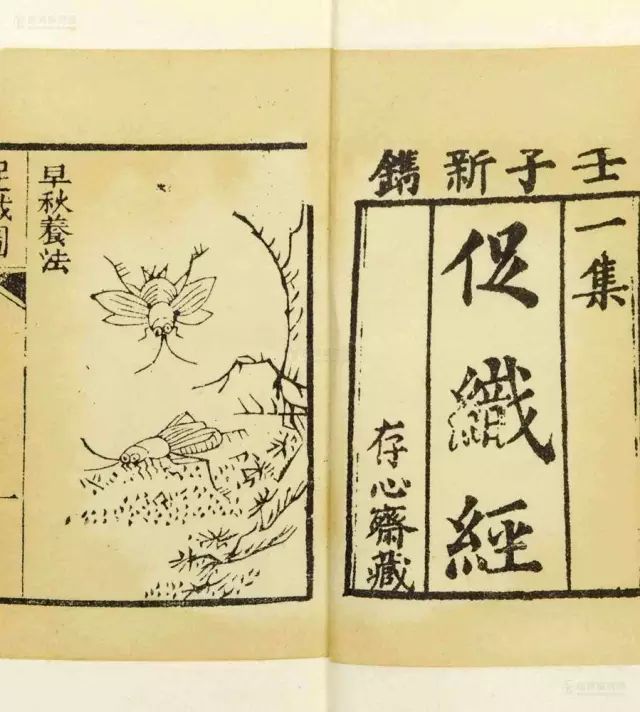 壬子新鐫
一集
促織經
存心齋藏
早秋養法
一